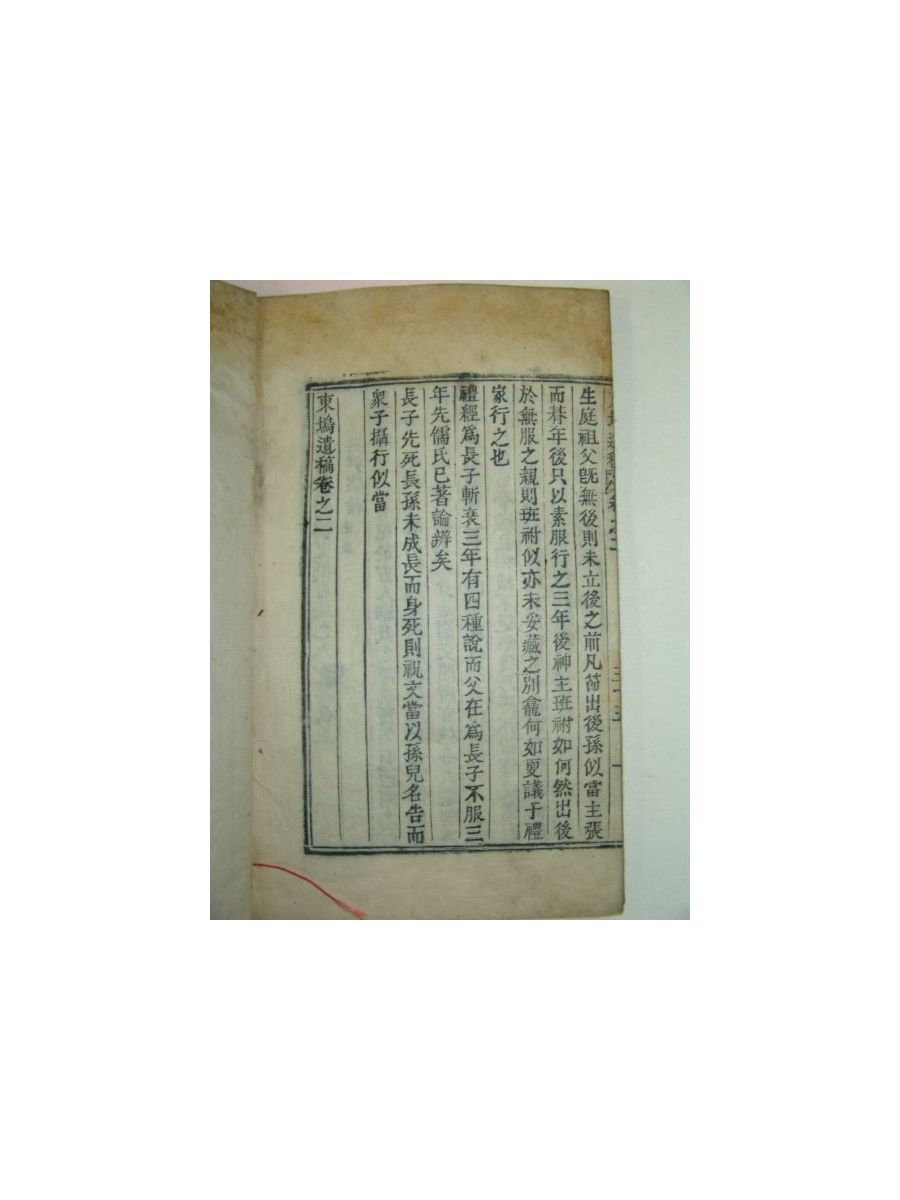 東塢遺稿卷之二
生庭祖父旣無後則未立後之前凡節出後孫似當主張
而朞年後只以素服行之三年後神主班祔如何然出後
於無服之親則班祔似亦未妥藏之別龕何如更議于禮
家行之也
禮經爲長子斬衰三年有四種說而父在爲長子不服三
年先儒氏已著論辨矣
長子先死長孫未成長而身死則祝文當以孫兒名告而
衆子攝行似當
東塢遺稿卷之二